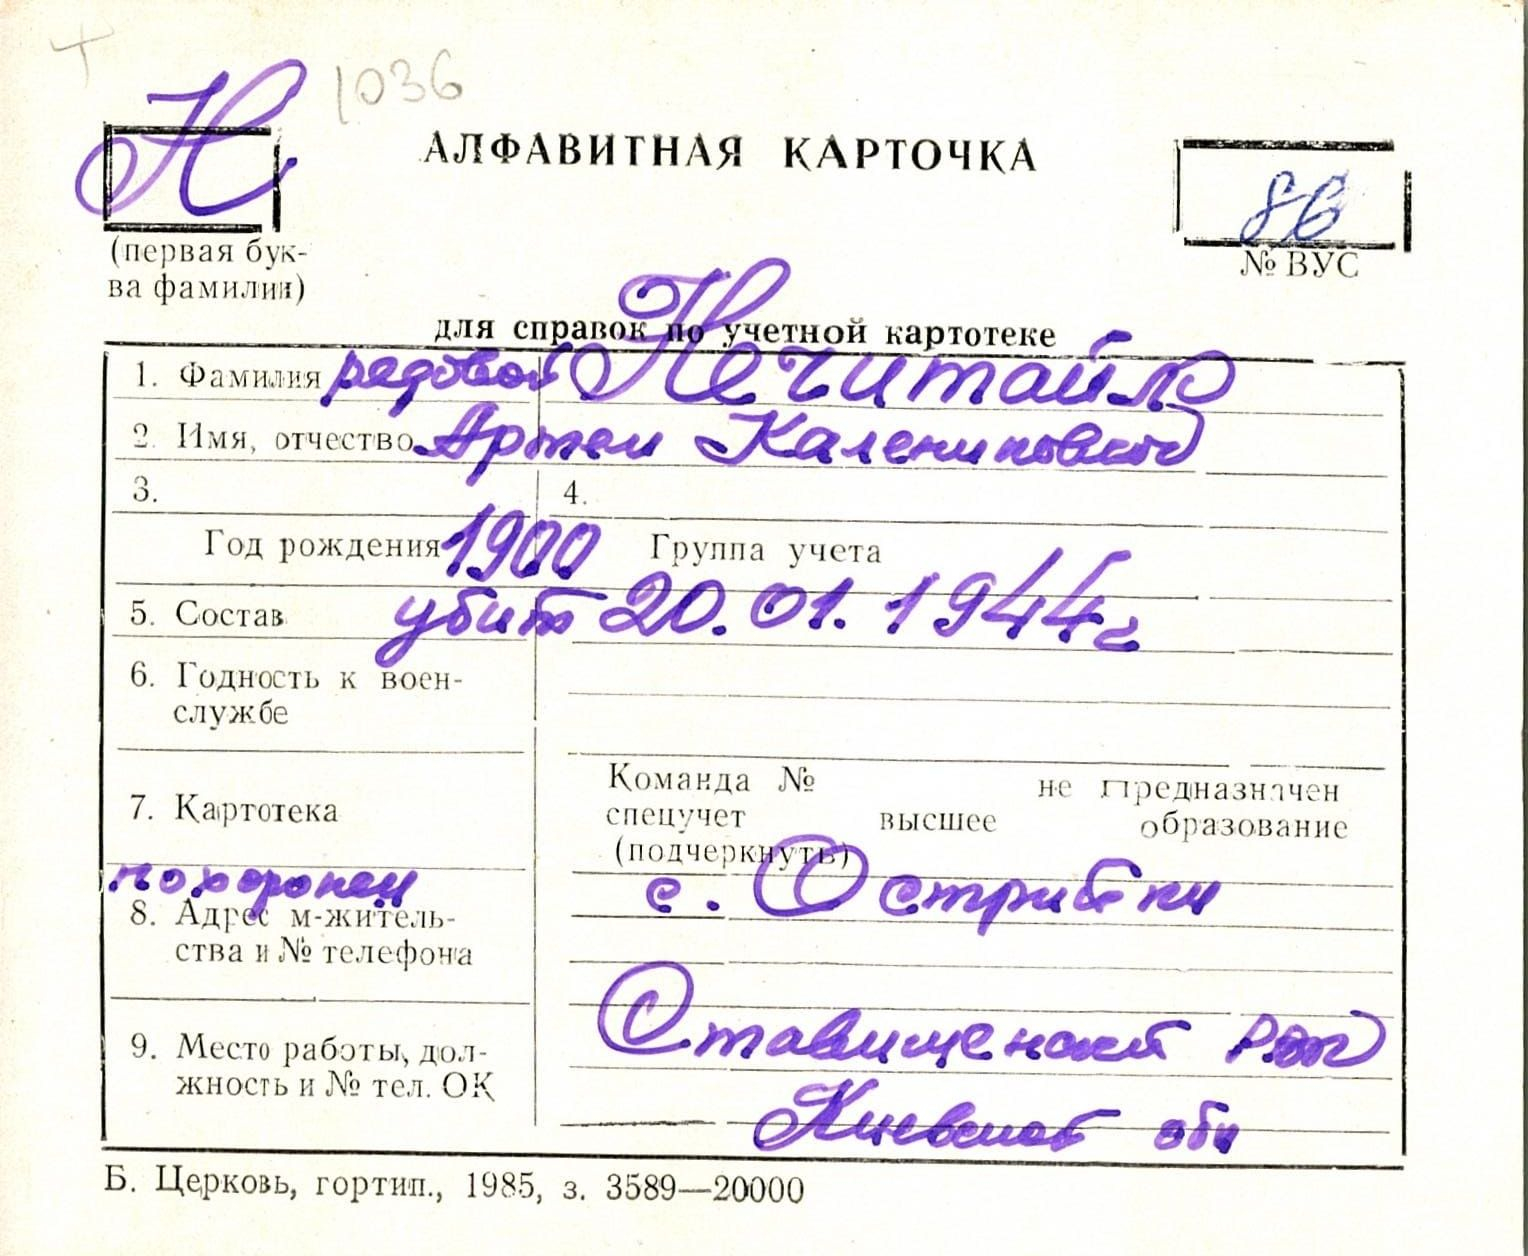 1036
Н
АЛФАВИТНАЯ КАРТОЧКА
86
(первая бук-
ва фамилии)
№ ВУС
для справок по учетной картотеке
1. Фамилия рядовой Нечитайло
2. Имя, отчество Артем Каленикович
3.
4.
Год рождения 1900 Группа учета
5. Состав убит 20.01.1944 г
6. Годность к воен-
службе
7. Картотека
Команда № не предназначен
спецучет высшее образование
(подчеркнуть)
похоронен с. Острийки
8. Адрес м-житель-
ства и № телефона
Ставищенский
9. Место работы, дол-
жность и № тел. ОК
Киевской обл
Б. Церковь, гортип., 1985, з. 3589—20000